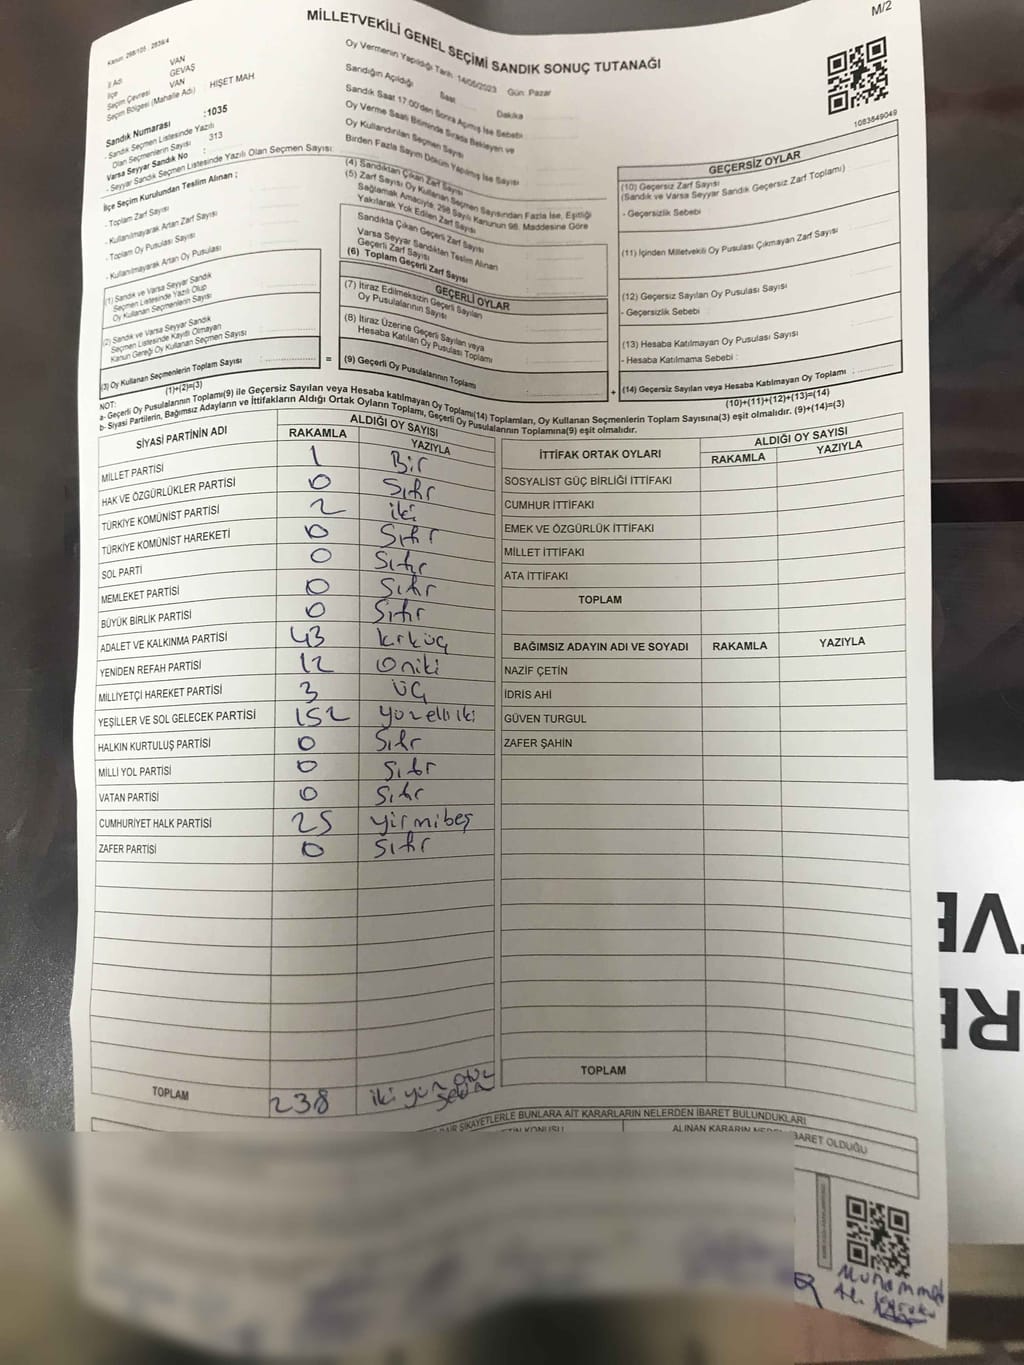 M/2
MİLLETVEKİLİ GENEL SEÇİMİ SANDIK SONUÇ TUTANAĞI
Kanun: 298/105 ; 2839/4
İl Adı VAN
İlçe GEVAŞ
Seçim Çevresi VAN
Seçim Bölgesi (Mahalle Adı) HİŞET MAH
Sandık Numarası :1035
- Sandık Seçmen Listesinde Yazılı
Olan Seçmenlerin Sayısı 313
Varsa Seyyar Sandık No :
- Seyyar Sandık Seçmen Listesinde Yazılı Olan Seçmen Sayısı:
İlçe Seçim Kurulundan Teslim Alınan ;
- Toplam Zarf Sayısı
- Kullanılmayarak Artan Zarf Sayısı
- Toplam Oy Pusulası Sayısı
- Kullanılmayarak Artan Oy Pusulası
(1) Sandık ve Varsa Seyyar Sandık
Seçmen Listesinde Yazılı Olup
Oy Kullanan Seçmenlerin Sayısı
(2) Sandık ve Varsa Seyyar Sandık
Seçmen Listesinde Kayıtlı Olmayan
Kanun Gereği Oy Kullanan Seçmen Sayısı
(3) Oy Kullanan Seçmenlerin Toplam Sayısı
(1)+(2)=(3)
Oy Vermenin Yapıldığı Tarih: 14/05/2023 Gün: Pazar
Sandığın Açıldığı Saat Dakika
Sandık Saat 17.00'den Sonra Açılmış İse Sebebi
Oy Verme Saati Bitiminde Sırada Bekleyen ve
Oy Kullandırılan Seçmen Sayısı
Birden Fazla Sayım Döküm Yapılmış İse Sayısı
(4) Sandıktan Çıkan Zarf Sayısı
(5) Zarf Sayısı Oy Kullanan Seçmen Sayısından Fazla İse, Eşitliği
Sağlamak Amacıyla; 298 Sayılı Kanunun 98. Maddesine Göre
Yakılarak Yok Edilen Zarf Sayısı
Sandıkta Çıkan Geçerli Zarf Sayısı
Varsa Seyyar Sandıktan Teslim Alınan
Geçerli Zarf Sayısı
(6) Toplam Geçerli Zarf Sayısı
GEÇERLİ OYLAR
(7) İtiraz Edilmeksizin Geçerli Sayılan
Oy Pusulalarının Sayısı
(8) İtiraz Üzerine Geçerli Sayılan veya
Hesaba Katılan Oy Pusulası Toplamı
= (9) Geçerli Oy Pusulalarının Toplamı
1083849049
GEÇERSİZ OYLAR
(10) Geçersiz Zarf Sayısı
(Sandık ve Varsa Seyyar Sandık Geçersiz Zarf Toplamı)
- Geçersizlik Sebebi
(11) İçinden Milletvekili Oy Pusulası Çıkmayan Zarf Sayısı
(12) Geçersiz Sayılan Oy Pusulası Sayısı
- Geçersizlik Sebebi
(13) Hesaba Katılmayan Oy Pusulası Sayısı
- Hesaba Katılmama Sebebi :
+ (14) Geçersiz Sayılan veya Hesaba Katılmayan Oy Toplamı :
(10)+(11)+(12)+(13)=(14)
NOT:
a- Geçerli Oy Pusulalarının Toplamı(9) ile Geçersiz Sayılan veya Hesaba katılmayan Oy Toplamı(14) Toplamları, Oy Kullanan Seçmenlerin Toplam Sayısına(3) eşit olmalıdır. (9)+(14)=(3)
b- Siyasi Partilerin, Bağımsız Adayların ve İttifakların Aldığı Ortak Oyların Toplamı, Geçerli Oy Pusulalarının Toplamına(9) eşit olmalıdır.
SİYASİ PARTİNİN ADI ALDIĞI OY SAYISI
RAKAMLA YAZIYLA
MİLLET PARTİSİ 1 Bir
HAK VE ÖZGÜRLÜKLER PARTİSİ 0 Sıfır
TÜRKİYE KOMÜNİST PARTİSİ 2 iki
TÜRKİYE KOMÜNİST HAREKETİ 0 Sıfır
SOL PARTİ 0 Sıfır
MEMLEKET PARTİSİ 0 Sıfır
BÜYÜK BİRLİK PARTİSİ 0 Sıfır
ADALET VE KALKINMA PARTİSİ 43 kırküç
YENİDEN REFAH PARTİSİ 12 Oniki
MİLLİYETÇİ HAREKET PARTİSİ 3 üç
YEŞİLLER VE SOL GELECEK PARTİSİ 152 yüzelliiki
HALKIN KURTULUŞ PARTİSİ 0 Sıfır
MİLLİ YOL PARTİSİ 0 Sıfır
VATAN PARTİSİ 0 Sıfır
CUMHURİYET HALK PARTİSİ 25 yirmibeş
ZAFER PARTİSİ 0 Sıfır
TOPLAM 238 iki yüz otuz sekiz
İTTİFAK ORTAK OYLARI ALDIĞI OY SAYISI
RAKAMLA YAZIYLA
SOSYALİST GÜÇ BİRLİĞİ İTTİFAKI
CUMHUR İTTİFAKI
EMEK VE ÖZGÜRLÜK İTTİFAKI
MİLLET İTTİFAKI
ATA İTTİFAKI
TOPLAM
BAĞIMSIZ ADAYIN ADI VE SOYADI RAKAMLA YAZIYLA
NAZİF ÇETİN
İDRİS AHİ
GÜVEN TURGUL
ZAFER ŞAHİN
TOPLAM
ŞİKAYETLERLE BUNLARA AİT KARARLARIN NELERDEN İBARET BULUNDUKLARI
KONUSU ALINAN KARARIN İBARET OLDUĞU
Muhammed
Ali